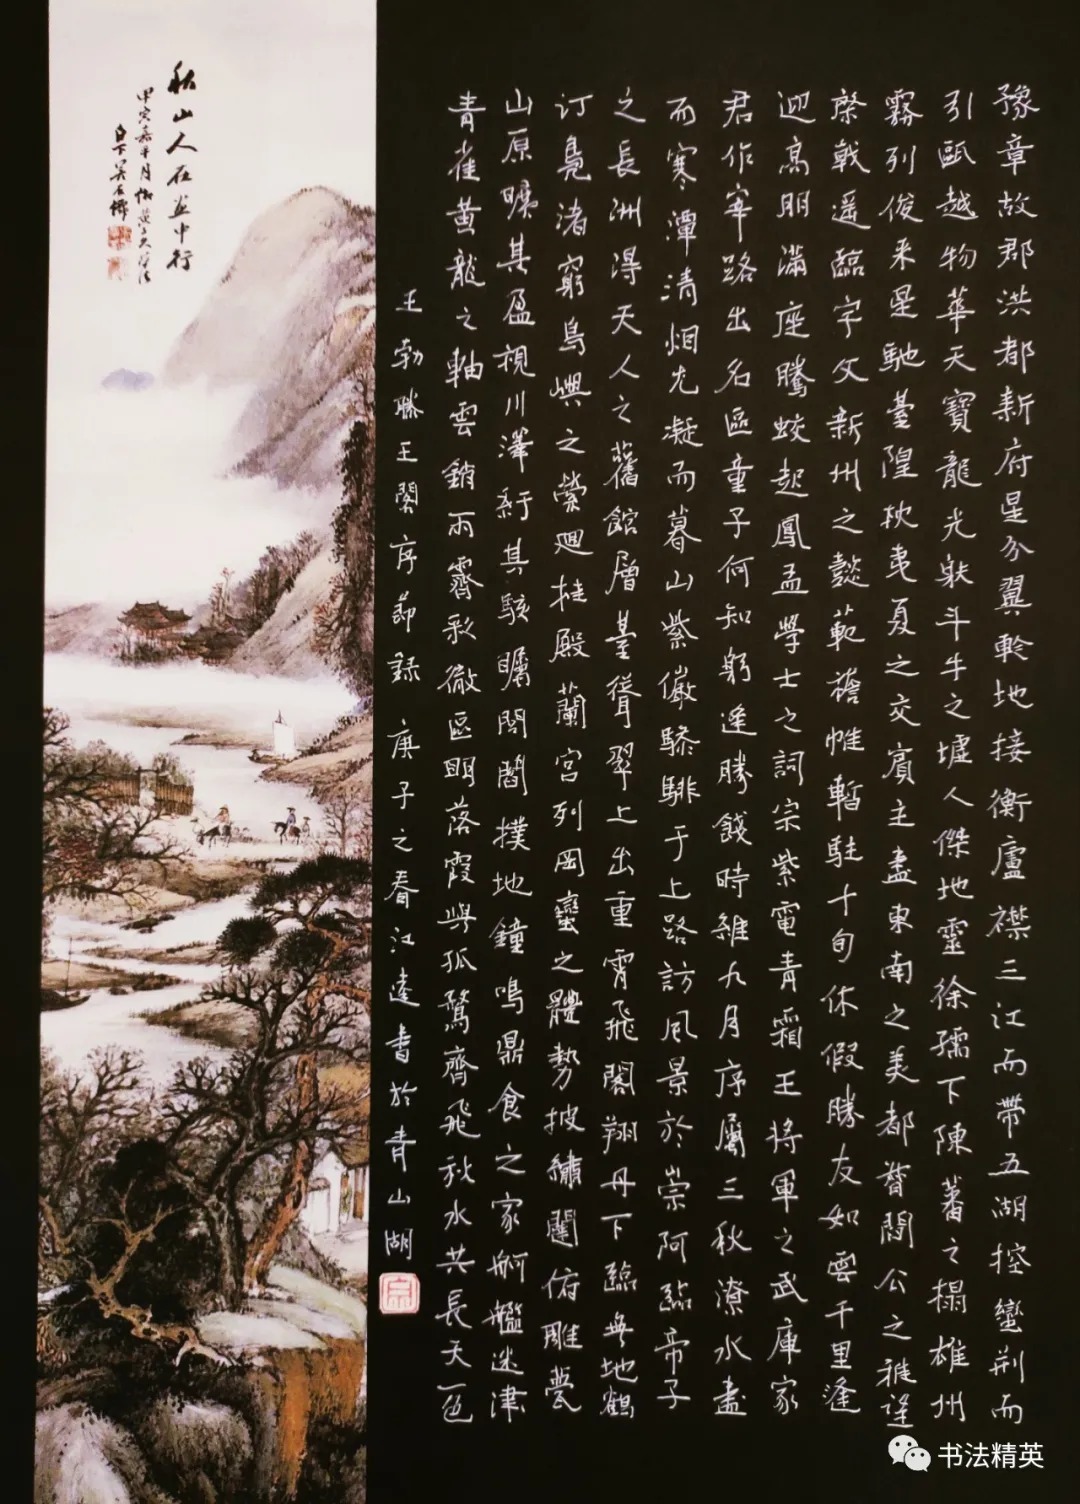 豫章故郡洪都新府星分翼軫地接衡廬襟三江而帶五湖控蠻荆而
引甌越物華天寶龍光射斗牛之墟人傑地靈徐孺下陳蕃之榻雄州
霧列俊采星馳臺隍枕夷夏之交賓主盡東南之美都督閻公之雅望
棨戟遥臨宇文新州之懿範襜帷暫駐十旬休假勝友如雲千里逢
迎高朋滿座騰蛟起鳳孟學士之詞宗紫電青霜王將軍之武庫家
君作宰路出名區童子何知躬逢勝餞時維九月序屬三秋潦水盡
而寒潭清烟光凝而暮山紫儼驂騑于上路訪風景於崇阿臨帝子
之長洲得天人之舊館層臺聳翠上出重霄飛閣翔丹下臨無地鶴
汀鳧渚窮島嶼之縈迴桂殿蘭宮列岡巒之體勢披繡闥俯雕甍
山原曠其盈視川澤紆其駭矚閭閻撲地鐘鳴鼎食之家舸艦迷津
青雀黄龍之軸雲銷雨霽彩徹區明落霞與孤鶩齊飛秋水共長天一色
王勃滕王閣序節録 庚子之春江逵書於青山湖
秋山人在畫中行
甲寅嘉平月
白下吴石僊
书法精英